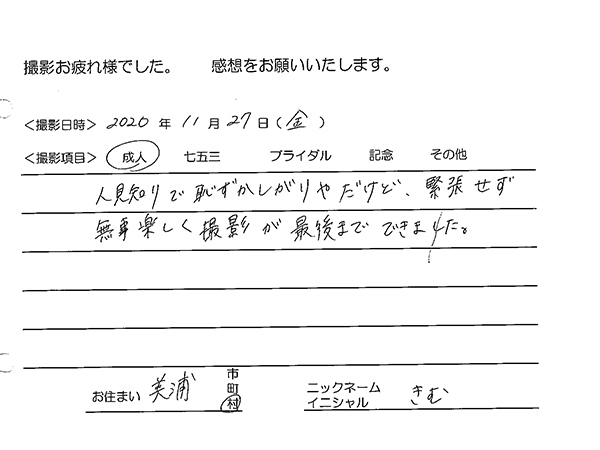 撮影お疲れ様でした。 感想をお願いいたします。
＜撮影日時＞ 2020 年 11 月 27 日（金）
＜撮影項目＞ 成人 七五三 ブライダル 記念 その他
人見知りで恥ずかしがりやだけど、緊張せず
無事楽しく撮影が最後までできました。
お住まい 美浦 市 町 村
ニックネーム イニシャル きむ